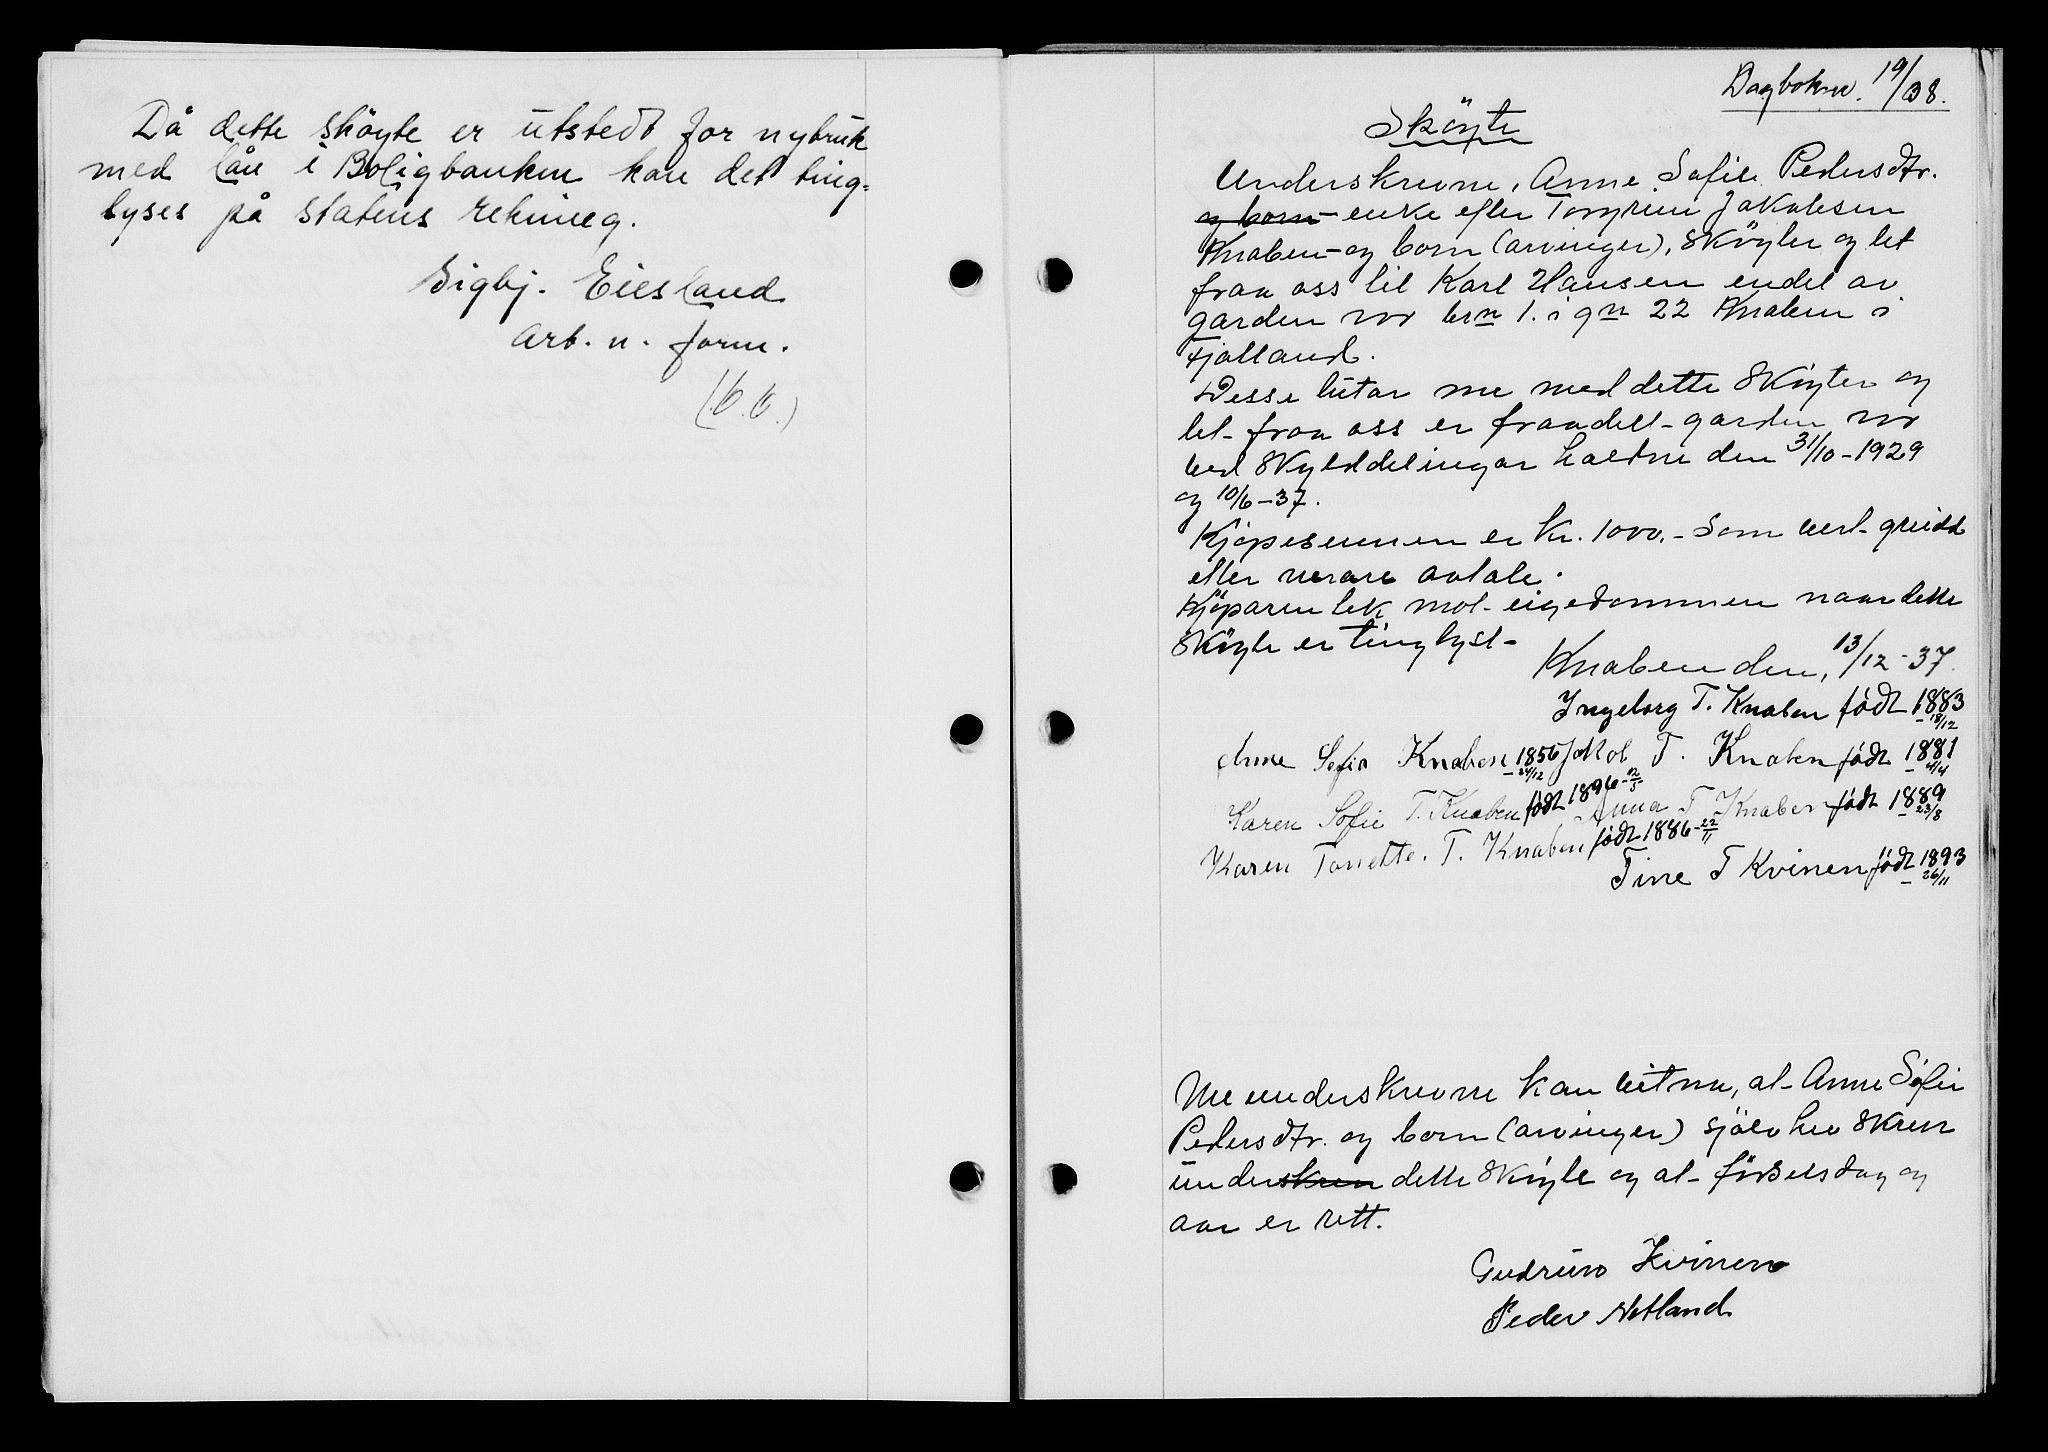 Då dette sköyte er utstedt for nybruk
med lån i Boligbanken kan det ting-
lyses på statens rekning.
Sigbj. Eiesland
Arb. n. form.
Dagboknr. 19/38.
Sköyte
Underskrevne, Anne Sofie Pedersdtr.
og born - enke efter Torgrim Jakobsen
Knaben - og born (arvinger), skøyter og let
fraa oss til Karl Hansen endel av
garden vor brn 1. i gn 22 Knaben i
Fjotland.
Desse lutar me med dette skøyter og
let fraa oss er fraadelt garden vor
ved skylddelingar haldne den 31/10-1929
og 10/6-37.
Kjøpesummen er kr. 1000.- som vert greidd
etter nerare avtale.
Kjøparen tek mot eigedommen naar dette
skøyte er tinglyst-
Knaben den, 13/12-37.
Ingeborg T. Knaben født 1883 - 18/12
Anne Sofie Knaben 1856 - 24/12 Jakob T. Knaben født 1881 - 4/4
Karen Sofie T. Knaben født 1896 - 12/5 Anna T Knaben født 1889 - 23/8
Karen Tonette. T. Knaben født 1886 - 22/11
Tine T Kvinen født 1893 - 26/11
Me underskrevne kan vitna, at Anne Sofie
Pedersdtr. og born (arvinger) sjölv hev skreve
underskreve dette skøyte og at fødselsdag og
aar er rett.
Gudrun Kvinen
Peder Netland